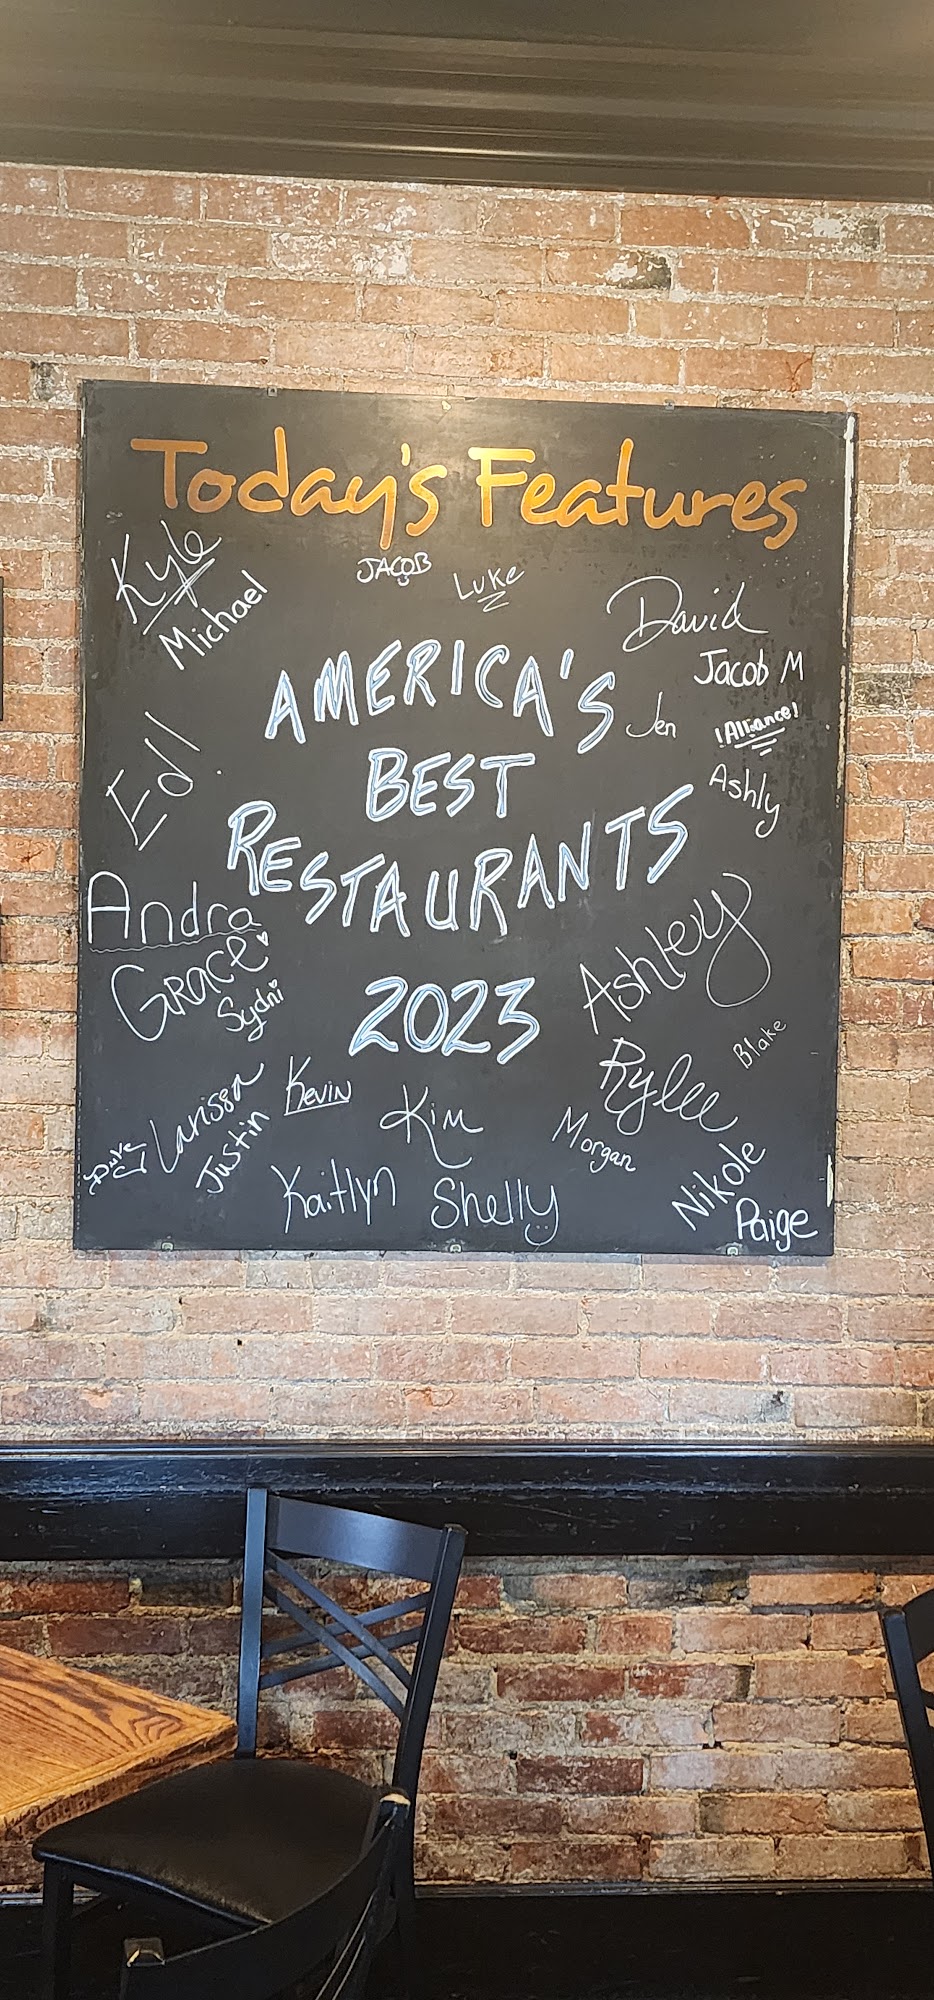 Today's Features
Kyle
Michael
JACOB
Luke
David
Jacob M
AMERICA'S
Jen
!Alliance!
Ed!
BEST
Ashly
RESTAURANTS
Andra
Grace
Sydni
2023
Ashley
Blake
Rylee
Larissa
Justin
Kevin
Kim
Morgan
Kaitlyn
Shelly
Nikole
Paige